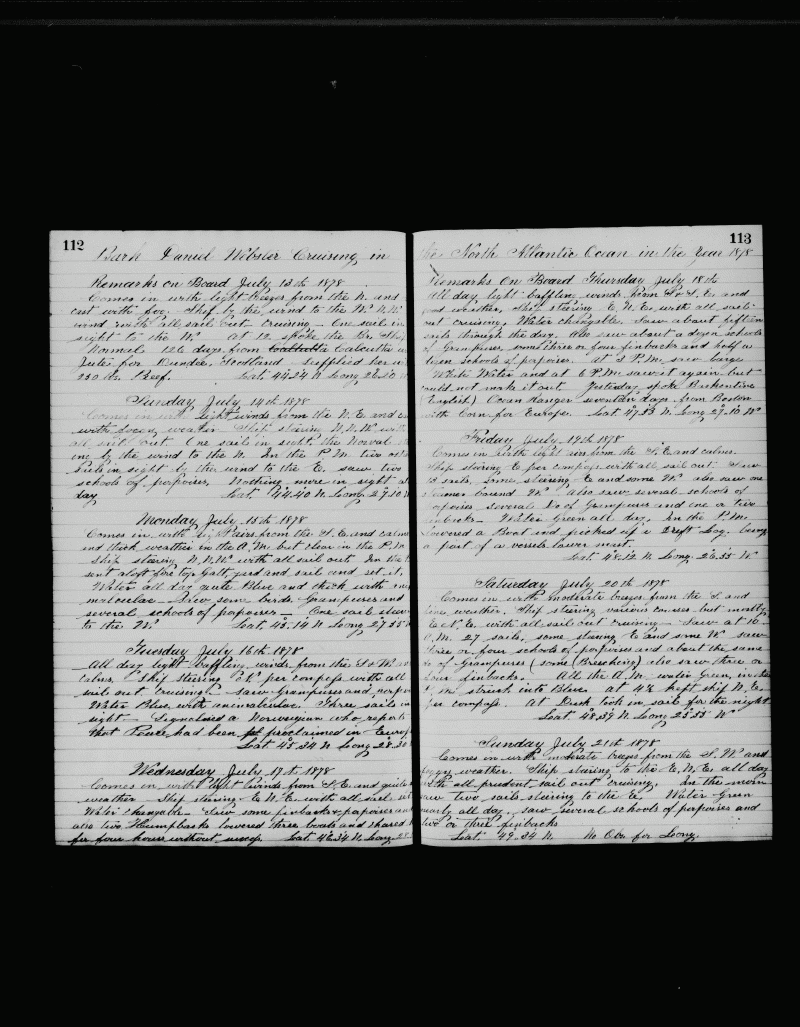 112
Bark Daniel Webster Cruising in
Remarks on Board July 13th 1878
Comes in with light breezes from the N. and
east with fog. Ship by the wind to the N.
wind with all sail out cruising - One sail in
sight to the N. At 12 spoke the Br. Ship
Norval 126 days from Calcutta
Jutes for Dundee, Scotland supplied her
250 lbs Beef. Lat 44.24 N Long 28.50
Sunday July 14th 1878
Comes in with light winds from the N.E. and
with foggy weather Ship steering N.N.W. with
all sail out. One sails in sight the Norval
one by the wind to the N. In the P.M. two
sails in sight by the wind to the E. saw two
schools of porpoises, Nothing more in sight
day Lat. 44.40 N. Long 29.10
Monday July 15th 1878
Comes in with light airs from the S.E. and calms
and thick weather in the A.M. but clear in the P.M.
Ship steering N.N.W. with all sail out In the
sent aloft fore top Gallt yard and sail and set it,
Water all day quite Blue and thick with
- Saw some birds. Grampuses and
several schools of porpoises - One sail
to the N. Lat. 45.14 N Long 29.35
Tuesday July 16th 1878
All day light baffling winds from the S & W
calms, Ship steering N. per compass with all
sail out Cruising - saw Grampuses and
Water Blue, with Three sails in
sight - Signalised a Norwegian who reports
that Peace had been proclaimed in Europe
Lat 45.34 N Long 28.30
Wednesday July 17th 1878
Comes in with light winds from S.E. and quite
weather Ship steering E.N.E. with all sail
Water changable - Saw some finbacks & porpoises and
also two Humpbacks lowered three boats and chased
for four hours without success. Lat. 46.34 N Long
113
the North Atlantic Ocean in the Year 1878
Remarks On Board Thursday July 18th
All day light baffling winds from S & S.E. and
good weather, Ship steering E.N.E. with all sail
out cruising, Water changable. Saw about fifteen
sails through the day. Also saw about a dozen schools
of Grampuses some three or four finbacks and half a
dozen schools of porpoises. At 3 P.M. saw large
White Water and at 6 P.M. saw it again but
could not make it out. Yesterday spoke Barkentine
(English) Ocean Ranger seventeen days from Boston
with Corn for Europe. Lat 47.53 N. Long 27.10 W
Friday July 19th 1878
Comes in with light airs from the S.E. and calms.
Ship steering E per compass with all sail out Saw
13 sails, some steering E and some W. also saw one
steamer bound W. Also saw several schools of
porpoises several do of Grampuses and one or two
finbacks - Water green all day. In the P.M.
lowered a Boat and picked up a Drift Log, being
a part of a vessels lower mast.
Lat. 48.12 N. Long 26.55 W
Saturday July 20th 1878
Comes in with moderate breezes from the S. and
fine weather. Ship steering various courses but mostly
E.N.E. with all sail out cruising - Saw at 10
A.M. 27 sails, some steering E and some W. saw
three or four schools of porpoises and about the same
no of Grampuses (some Breaching) also saw three or
four finbacks. All the A.M. water Green, in the
P.M. struck into Blue. At 4½ kept ship N.E.
per compass. At Dusk took in sail for the night
Lat 48.59 N. Long 25.55 W
Sunday July 21th 1878
Comes in with moderate breezes from the S.W. and
foggy weather. Ship steering to the E.N.E. all day
with all prudent sail out cruising. In the morn
saw two sails steering to the E. Water Green
nearly all day saw several schools of porpoises and
two or three finbacks
Lat. 49.34 N. No Obs for Long.